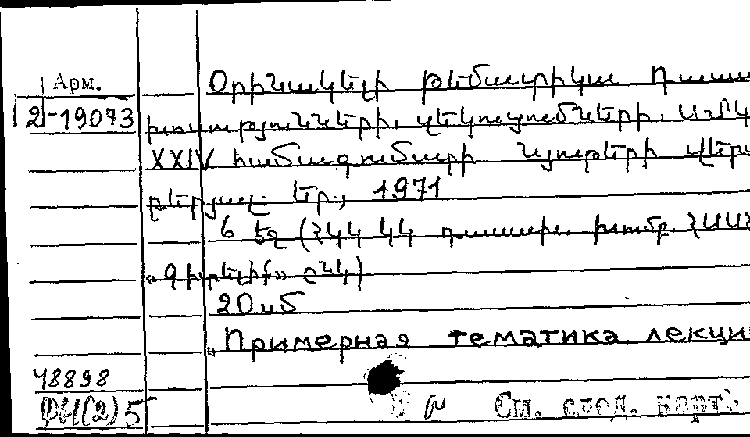 Арм.
2-19073
Օրինակելի թեմատիկա դասա
խոսությունների, զեկուցումների. ՍՄԿԿ
XXIV համագումարի նյութերի վերա
բերյալ. Եր., 1971
6 էջ (ՀԿԿ ԿԿ
«Գիտելիք» ընկ)
20 սմ
Примерная тематика лекци
48898
См. след. карт.